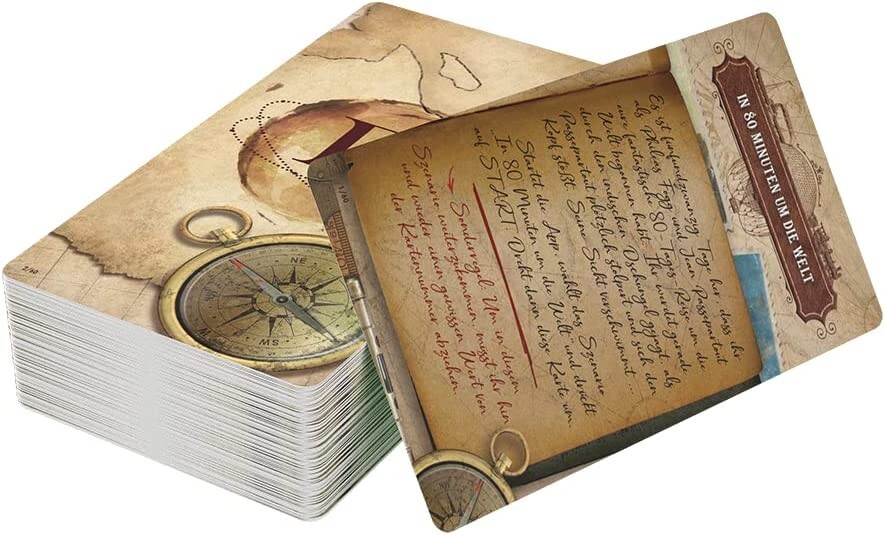 IN 80 MINUTEN UM DIE WELT
Es ist fünfundzwanzig Tage her, dass ihr
als Phileas Fogg und Jean Passepartout
eure fantastische 80-Tages-Reise um die
Welt begonnen habt. Ihr werdet gerade
durch den indischen Dschungel gejagt, als
Passepartout plötzlich stolpert und sich den
Kopf stößt. Seine Sicht verschwimmt ...
Startet die App, wählt das Szenario
„In 80 Minuten um die Welt“ und drückt
auf START. Dreht dann diese Karte um.
→ Sonderregel: Um in diesem
Szenario weiterzukommen, müsst ihr hin
und wieder einen gewissen Wert von
der Kartennummer abziehen.
NE
SW